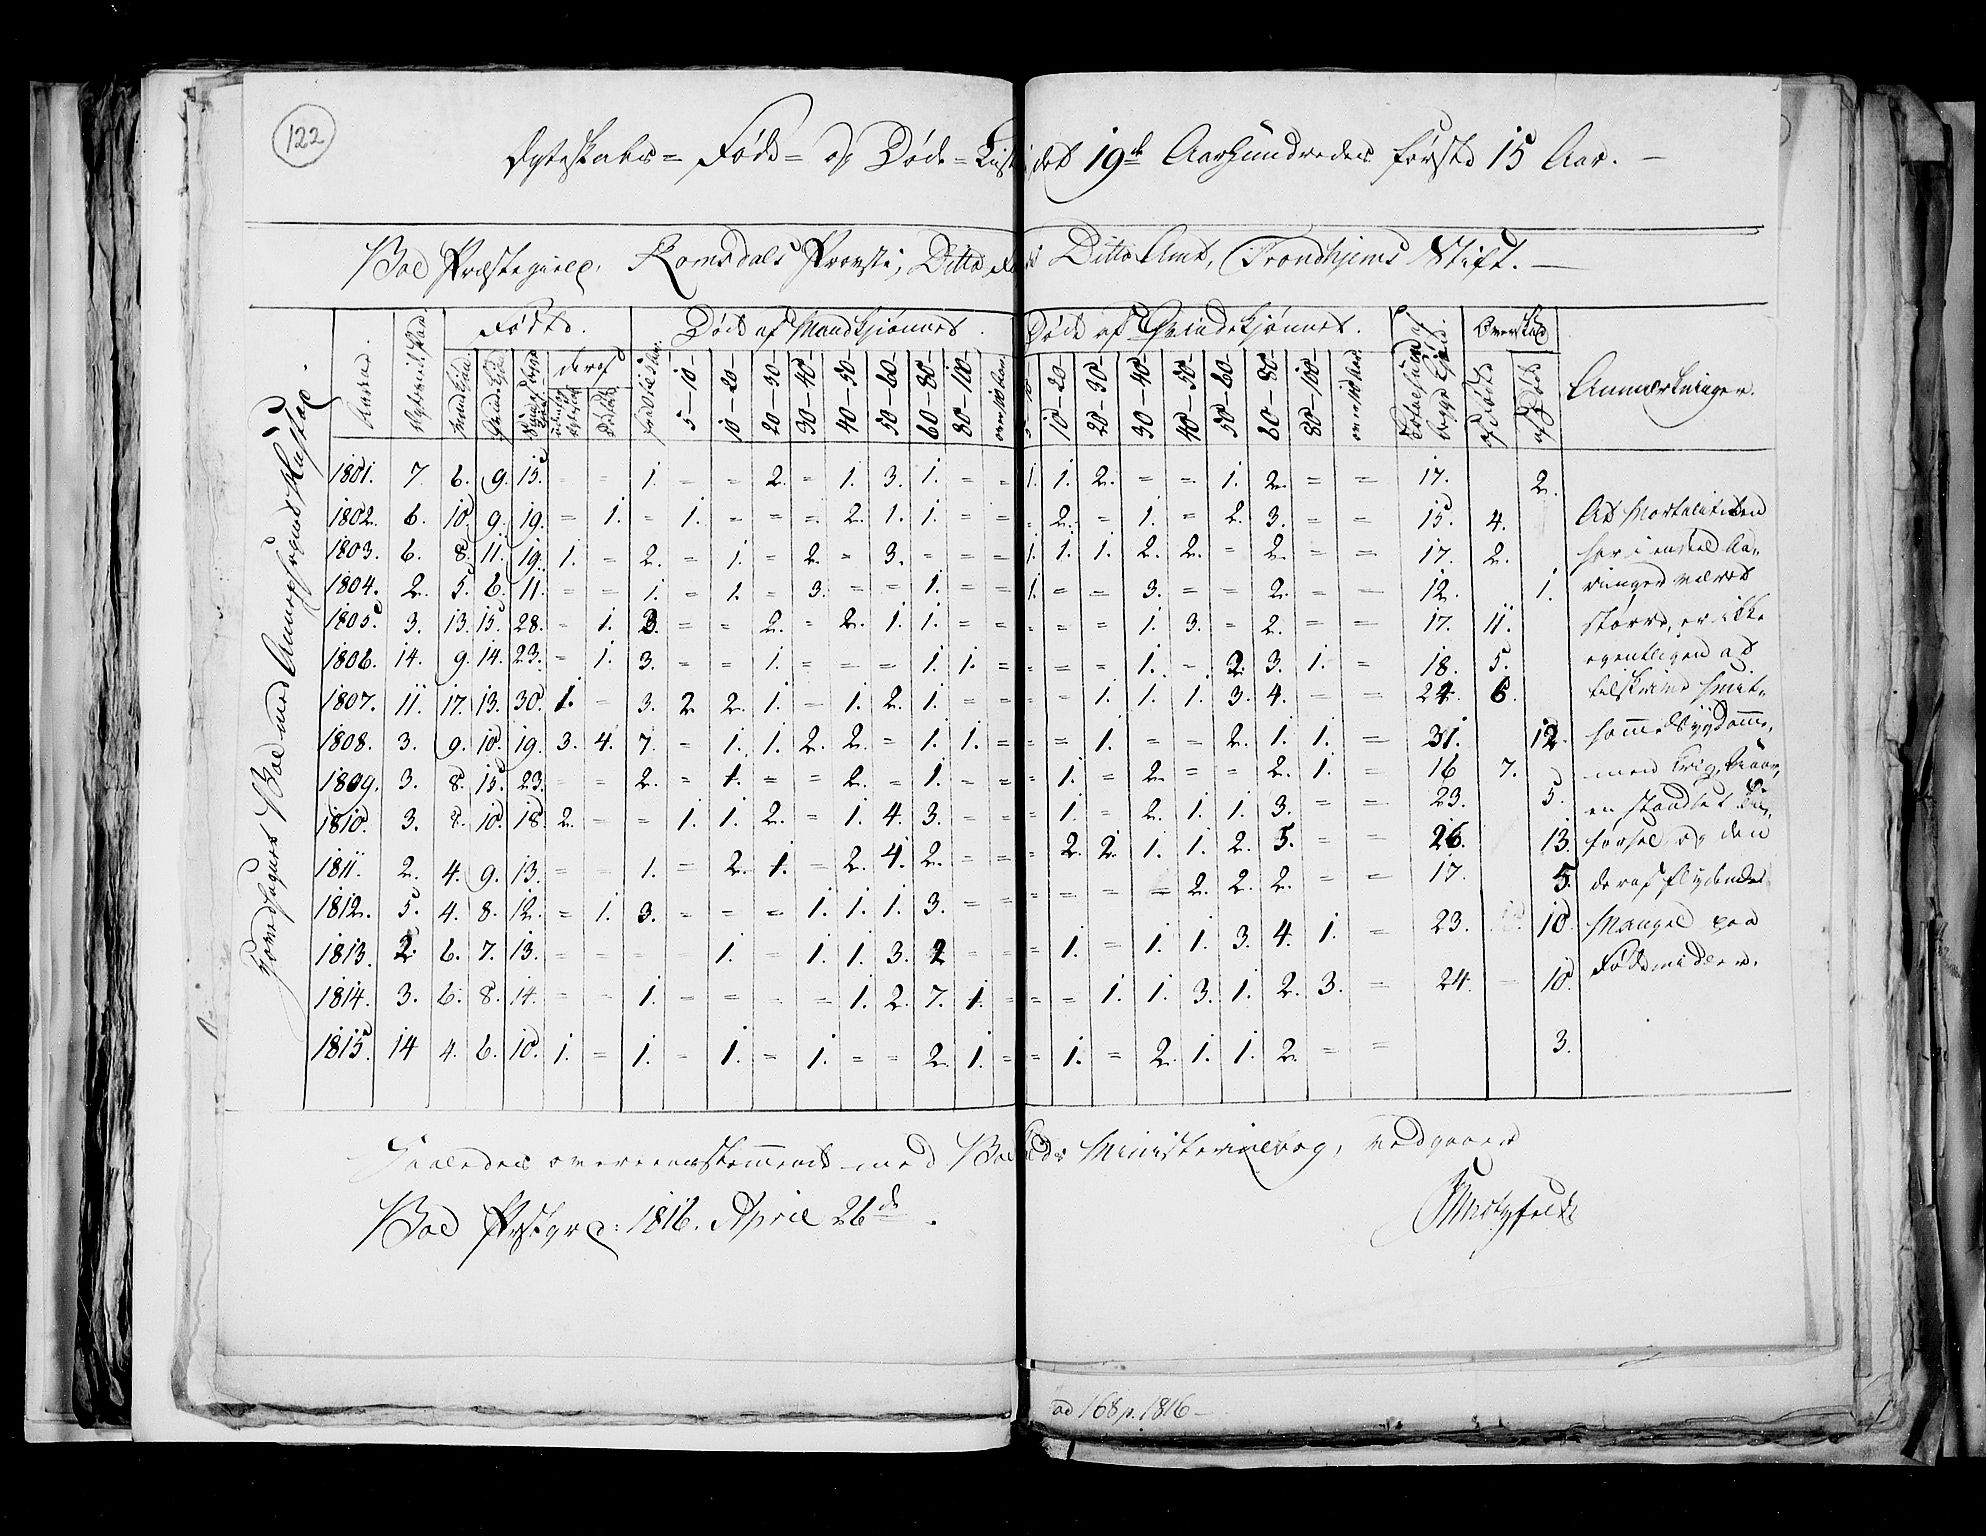 122.
Ægteskabs= Føde= og Døde= List det 19de Aarhundredes første 15 Aar. —
Boe Præstegield. Romsdals Provsti, Ditto Ditto Amt, Trondhjems Stift. —
Fødte. Døde af Mandkjønnet. Døde af Qvindekjønnet. Overskud
deraf
Aarene. 5-10- 10-20- 20-30- 30-40- 40-50- 50-60- 60-80- 80-100- 10-20- 20-30- 30-40- 40-50- 50-60- 60-80- 80-100- af Fødte af Døde Anmærkninger.
1801. 7. 6. 9. 15. = = 1. = = 2. = 1. 3. 1. = = 1. 1. 2. = = 1. 2. = = 17. 2.
1802. 6. 10. 9. 19. = 1. = 1. = = = 2. 1. 1. = = = 2. = 1. = 2. 3. = = 15. 4. At Mortaliteten
1803. 6. 8. 11. 19. 1. = 2. = 1. = 2. = 3. = = = 1. 1. 1. 2. 2. = 2. = = 17. 2. har i enkelte Aa=
1804. 2. 5. 6. 11. = = 1. = 1. = 3. = = 1. = = 1. = = 3. = = 2. = = 12. 1. ringer været
1805. 3. 13. 15. 28. = 1. 3. = = 2. = 2. 1. 1. = = = = = 1. 3. = 2. = = 17. 11. større, er ikke
1806. 14. 9. 14. 23. = 1. 3. = = 1. = = = 1. 1. = = = = 1. = 2. 3. 1. = 18. 5. egentligen at
1807. 11. 17. 13. 30. 1. = 3. 2. 2. 1. = 1. 2. 1. = = = = 1. 1. 1. 3. 4. = = 24. 6. tilskrive smit=
1808. 3. 9. 10. 19. 3. 4. 7. = 1. 1. 2. 2. = 1. 1. = = = 1. = = 2. 1. 1. = 31. 12. somme Sygdomme,
1809. 3. 8. 15. 23. = = 2. = 1. = = 2. = 1. = = = 1. = 2. = = 2. 1. = 16 7. men Krig,
1810. 3. 8. 10. 18. 2. = = 1. 1. 2. = 1. 4. 3. = = = 1. = 2. 1. 1. 3. = = 23. 5. en standset Til=
1811. 2. 4. 9. 13. = = 1. = 2. 1. = 2. 4. 2. = = = 2. 2. 1. 1. 2. 5. = = 26. 13. førsel, og den
1812. 5. 4. 8. 12. = 1. 3. = = = 1. 1. 1. 3. = = = = = = 2. 2. 2. = = 17. 5. deraf flydende
1813. 2. 6. 7. 13. = = = = 1. = 1. 1. 3. 2 = = = 1. = 1. 1. 3. 4. 1. = 23. 10. Mangel paa
1814. 3. 6. 8. 14. = = 1. = = = = 1. 2. 7. 1. = = = 1. 1. 3. 1. 2. 3. = 24. — 10. Fødemidler.
1815. 14 4. 6. 10. 1. = 1. = 1. = 1. = = 2. 1. = = 1. = 2. 1. 1. 2. = = 3.
Saaledes overeensstemmende med Boe Ministerialbog, vedgaaer
Boe Præstgrd: 1816. April 26de.
ad 168 p. 1816 —